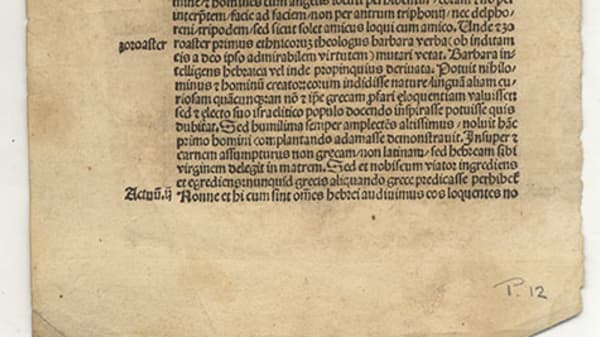 mine/ & homines cum angelis locuti perhibentur/ coram/ & no
interp̄tem/ facie ad faciem/ non per antrum triphonij/ nec delpho-
reni/ tripodem/ sed sicut solet amicus loqui cum amico. Unde & zo
zoroaster roaster primus ethnicoruʒ theologus barbara verba (ob inditam
eis a deo ipso admirabilem virtutem) mutari vetat. Barbara in-
telligens hebraica vel inde propinquius deriuata. Potuit nihilo-
minus & hominū creator: eorum indidisse nature/ linguā aliam cu
riosam quācunqʒ: an nō & ip̄e grecam p̄fari eloquentiam valuisset:
sed & electo suo israelitico populo docendo inspirasse potuisse quis
dubitat. Sed humilima semper amplectēs altissimus/ noluit hāc
primo homini complantando adamasse demonstrauit. Insuper &
carnem assumpturus non grecam/ non latinam/ sed hebream sibi
virginem delegit in matrem. Sed et nobiscum viator ingrediens
et egrediens: nunquid grecis aliquando grece predicasse perhibet̄
Actuū.ij Nonne et hi cum sint om̄es hebrei audiuimus eos loquentes no
P. 12